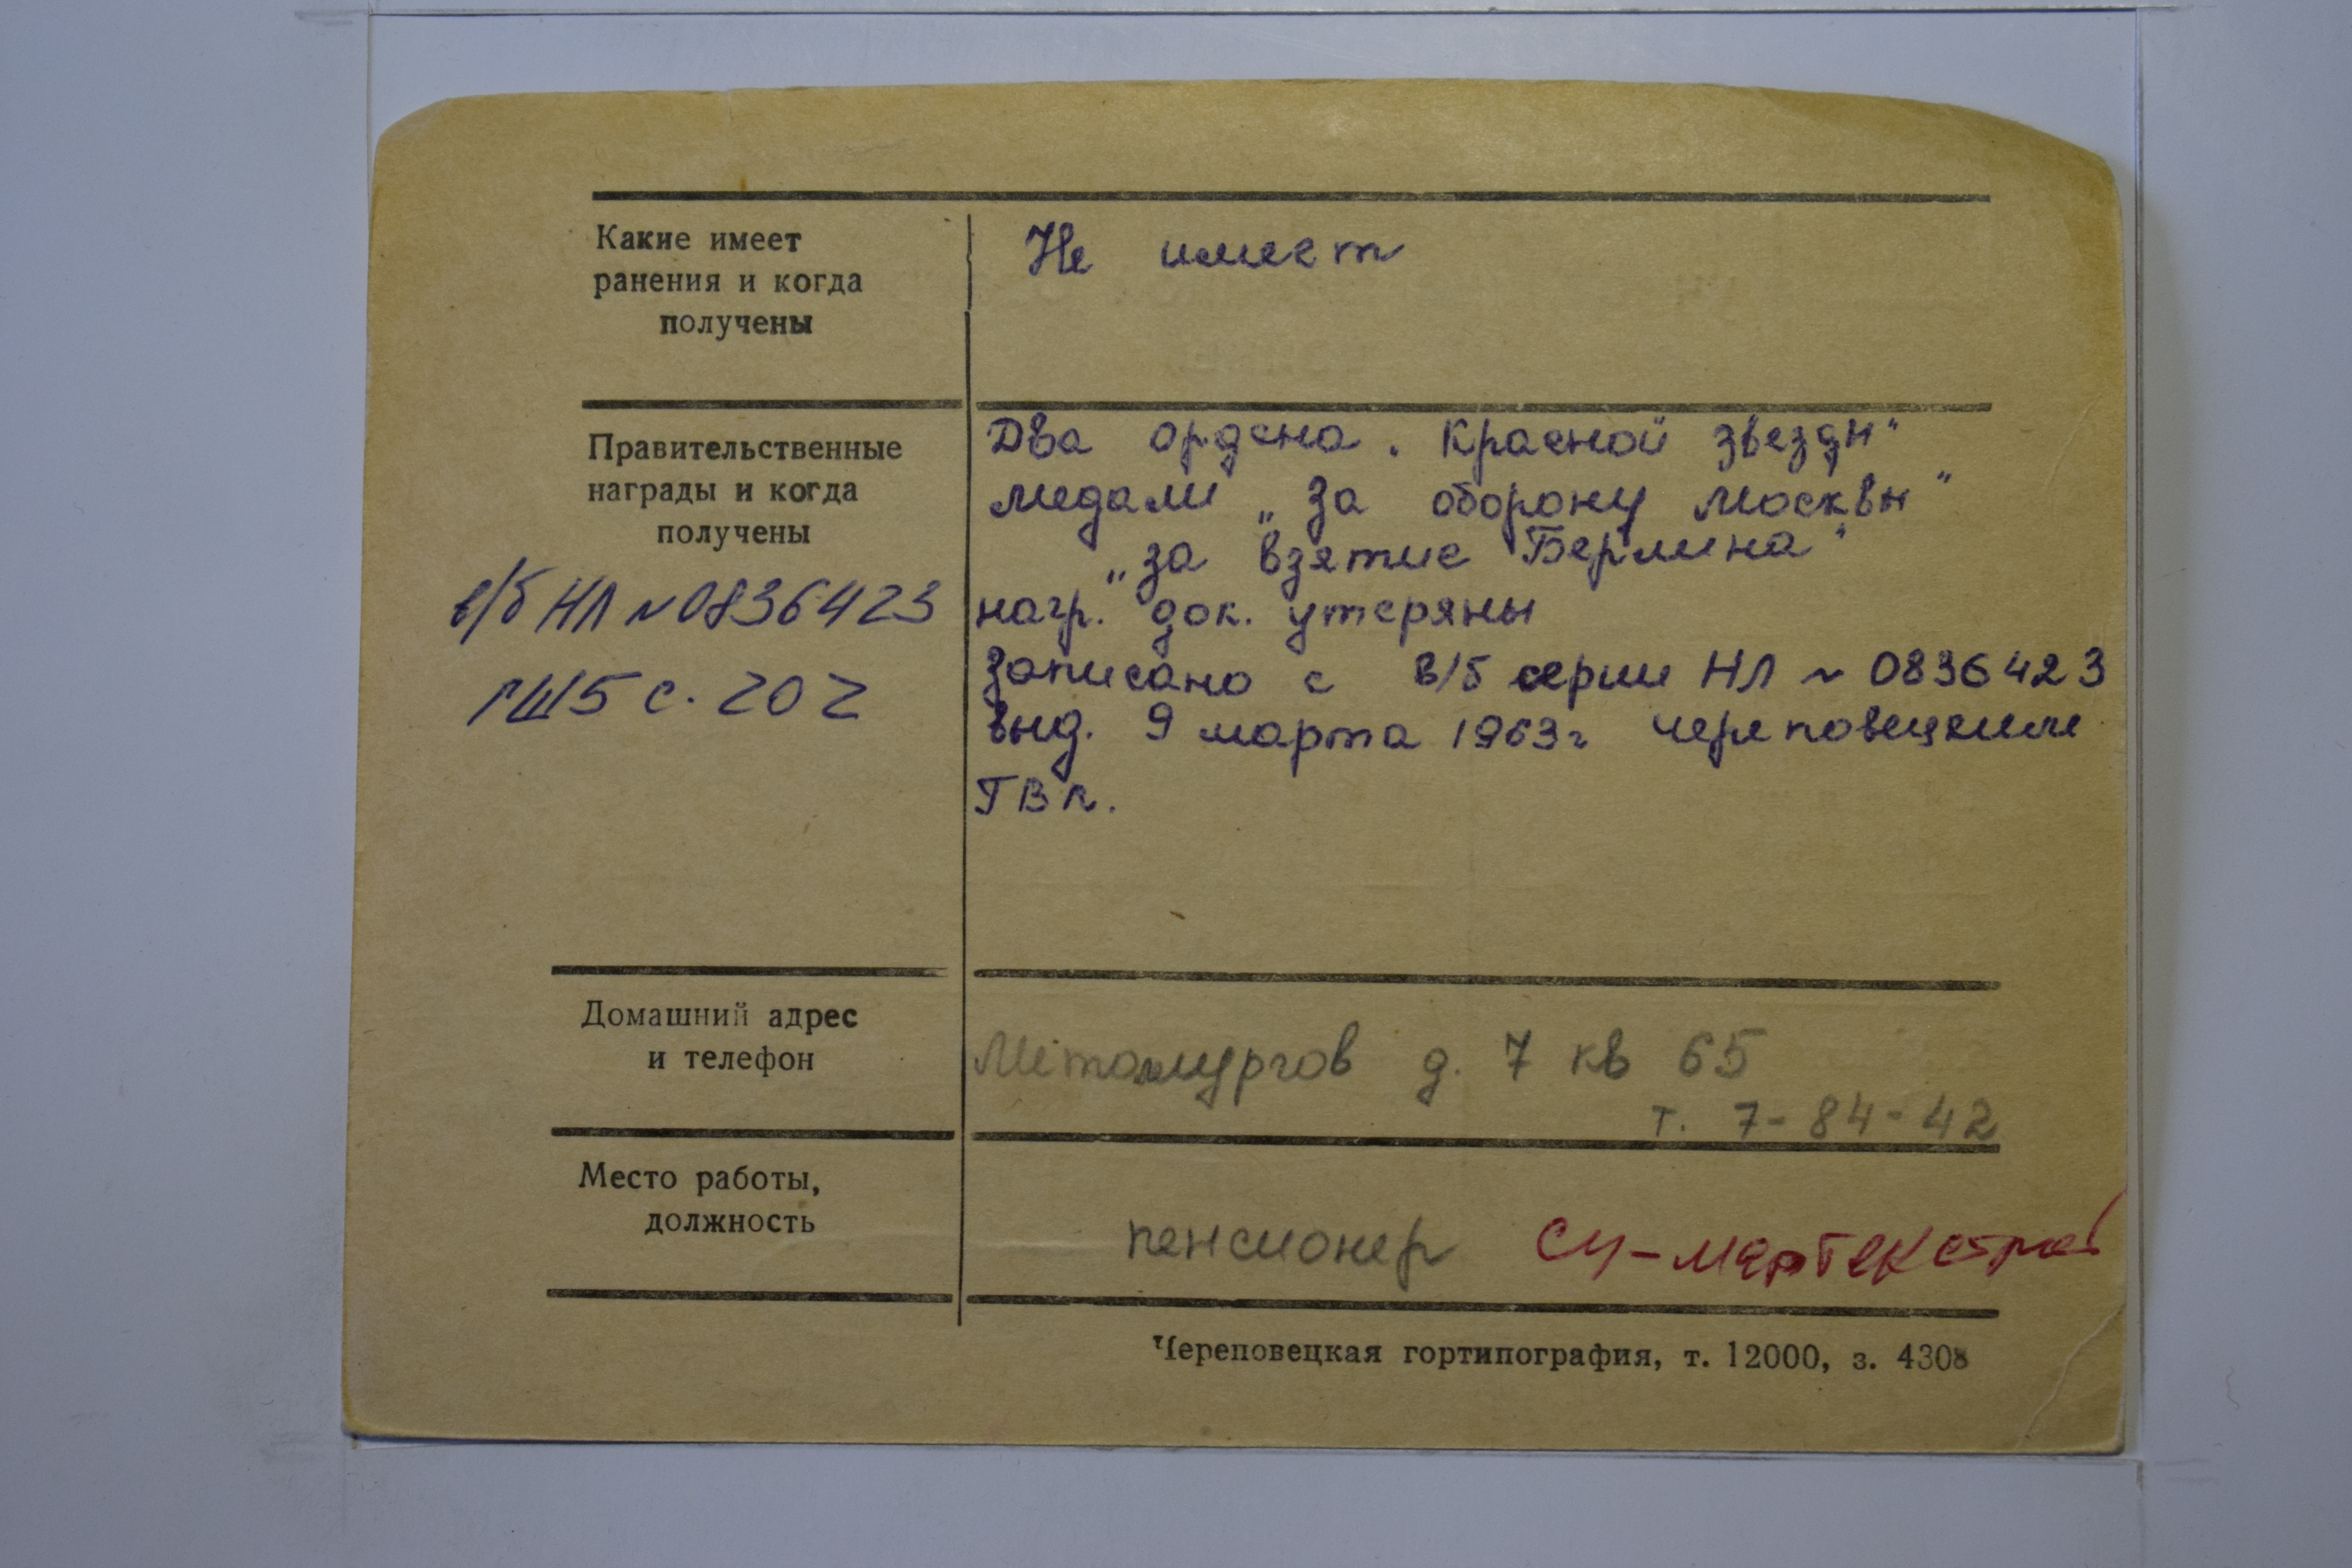 Какие имеет
ранения и когда
получены
Не имеет
Правительственные
награды и когда
получены
в/б НЛ №0836423
Два ордена „Красной звезды"
медали „За оборону Москвы"
„За взятие Берлина"
нагр. док. утеряны
Записано с в/б серии НЛ № 0836423
выд. 9 марта 1963г Череповецким
ГВК.
Домашний адрес
и телефон
Металлургов д. 7 кв 65
т. 7-84-42
Место работы,
должность
пенсионер СУ-
Череповецкая гортипография, т. 12000, з. 4308